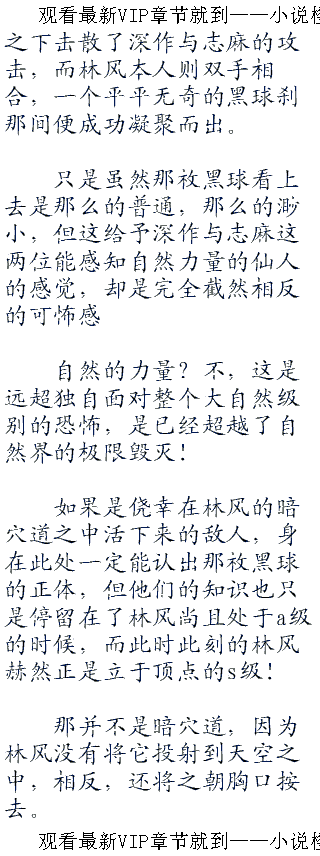 观看最新VIP章节就到——小说检
之下击散了深作与志麻的攻
击，而林风本人则双手相
合，一个平平无奇的黑球刹
那间便成功凝聚而出。
只是虽然那枚黑球看上
去是那么的普通，那么的渺
小，但这给予深作与志麻这
两位能感知自然力量的仙人
的感觉，却是完全截然相反
的可怖感
自然的力量？不，这是
远超独自面对整个大自然级
别的恐怖，是已经超越了自
然界的极限毁灭！
如果是侥幸在林风的暗
穴道之中活下来的敌人，身
在此处一定能认出那枚黑球
的正体，但他们的知识也只
是停留在了林风尚且处于a级
的时候，而此时此刻的林风
赫然正是立于顶点的s级！
那并不是暗穴道，因为
林风没有将它投射到天空之
中，相反，还将之朝胸口按
去。
观看最新VIP章节就到——小说检